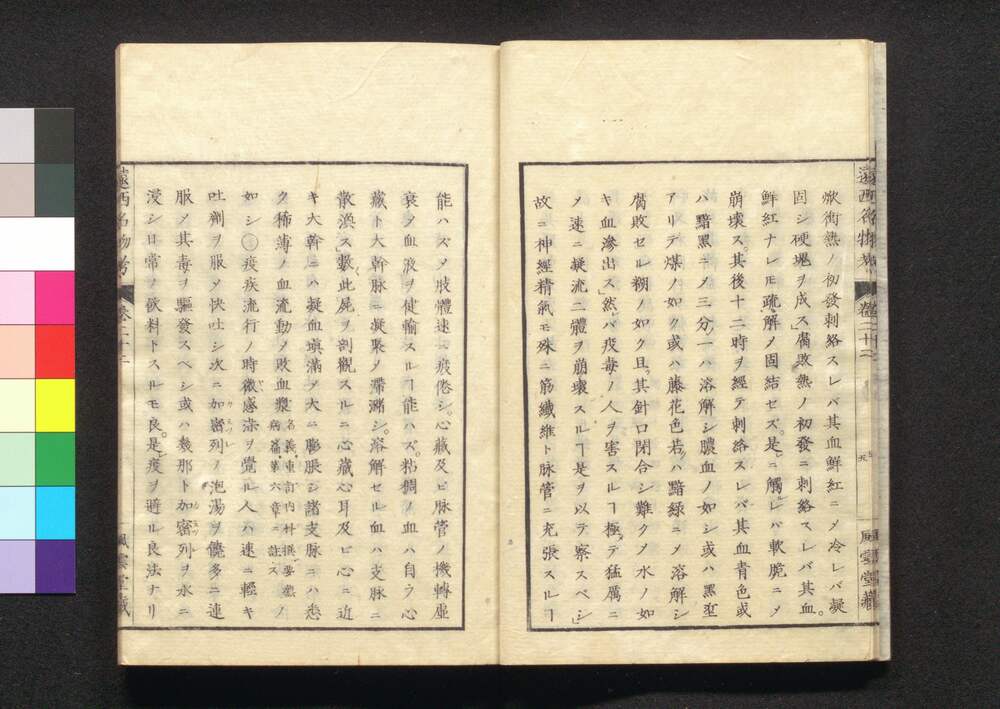 遠西名物考 卷二十二 風雲堂藏
焮衝熱ノ初發刺絡スレバ其血鮮紅ニメ冷レバ凝
固シ硬塊ヲ成ス」腐敗熱ノ初發ニ刺絡スレバ其血
鮮紅ナレモ疏解メ固結セズ是ニ觸レバ軟脆ニメ
崩壞ス其後十二時ヲ經テ刺絡スレバ其血青色或
ハ黯黑ニメ三分一ハ溶解シ膿血ノ如シ或ハ黑堊
アリテ煤ノ如ク或ハ藤花色若クハ黯綠ニメ溶解シ
腐敗セル糊ノ如ク且其針口閉合シ難クメ水ノ如
キ血滲出ス」然バ疫毒ノ人ヲ害スルヿ極テ猛厲ニ
メ速ニ凝流二體ヲ崩壞スルヿ是ヲ以テ察スベシ」
故ニ神經精氣モ殊ニ筋纖維ト脉管ニ充張スルヿ
能ハズメ肢體速ニ疲倦シ心藏及ビ脉管ノ機轉虛
衰メ血液ヲ健輸スルヿ能ハズ粘稠ノ血ハ自ラ心
藏ト大幹脉ニ凝聚メ滯瀦シ溶解セル血ハ支脉ニ
散漁ス」數此屍ヲ剖觀スルニ心藏心耳及ビ心ニ近
キ大幹ニハ凝血塡滿メ大ニ膨脹シ諸支脉ニハ悉
ク稀薄ノ血流動メ敗血漿名義重訂内科撰要熱ノ病篇第六章ニ註スノ
如シ○疫疾流行ノ時微ク感染ヲ覺ル人ハ速ニ輕キ
吐劑ヲ服メ快吐シ次ニ加密列ノ泡湯ヲ饒多ニ連
服メ其毒ヲ驅發スベシ或ハ幾那ト加密列ヲ水ニ
浸シ日常ノ飲料トスルモ良是疫ヲ避ル良法ナリ
遠西名物考 卷二十二 風雲堂藏